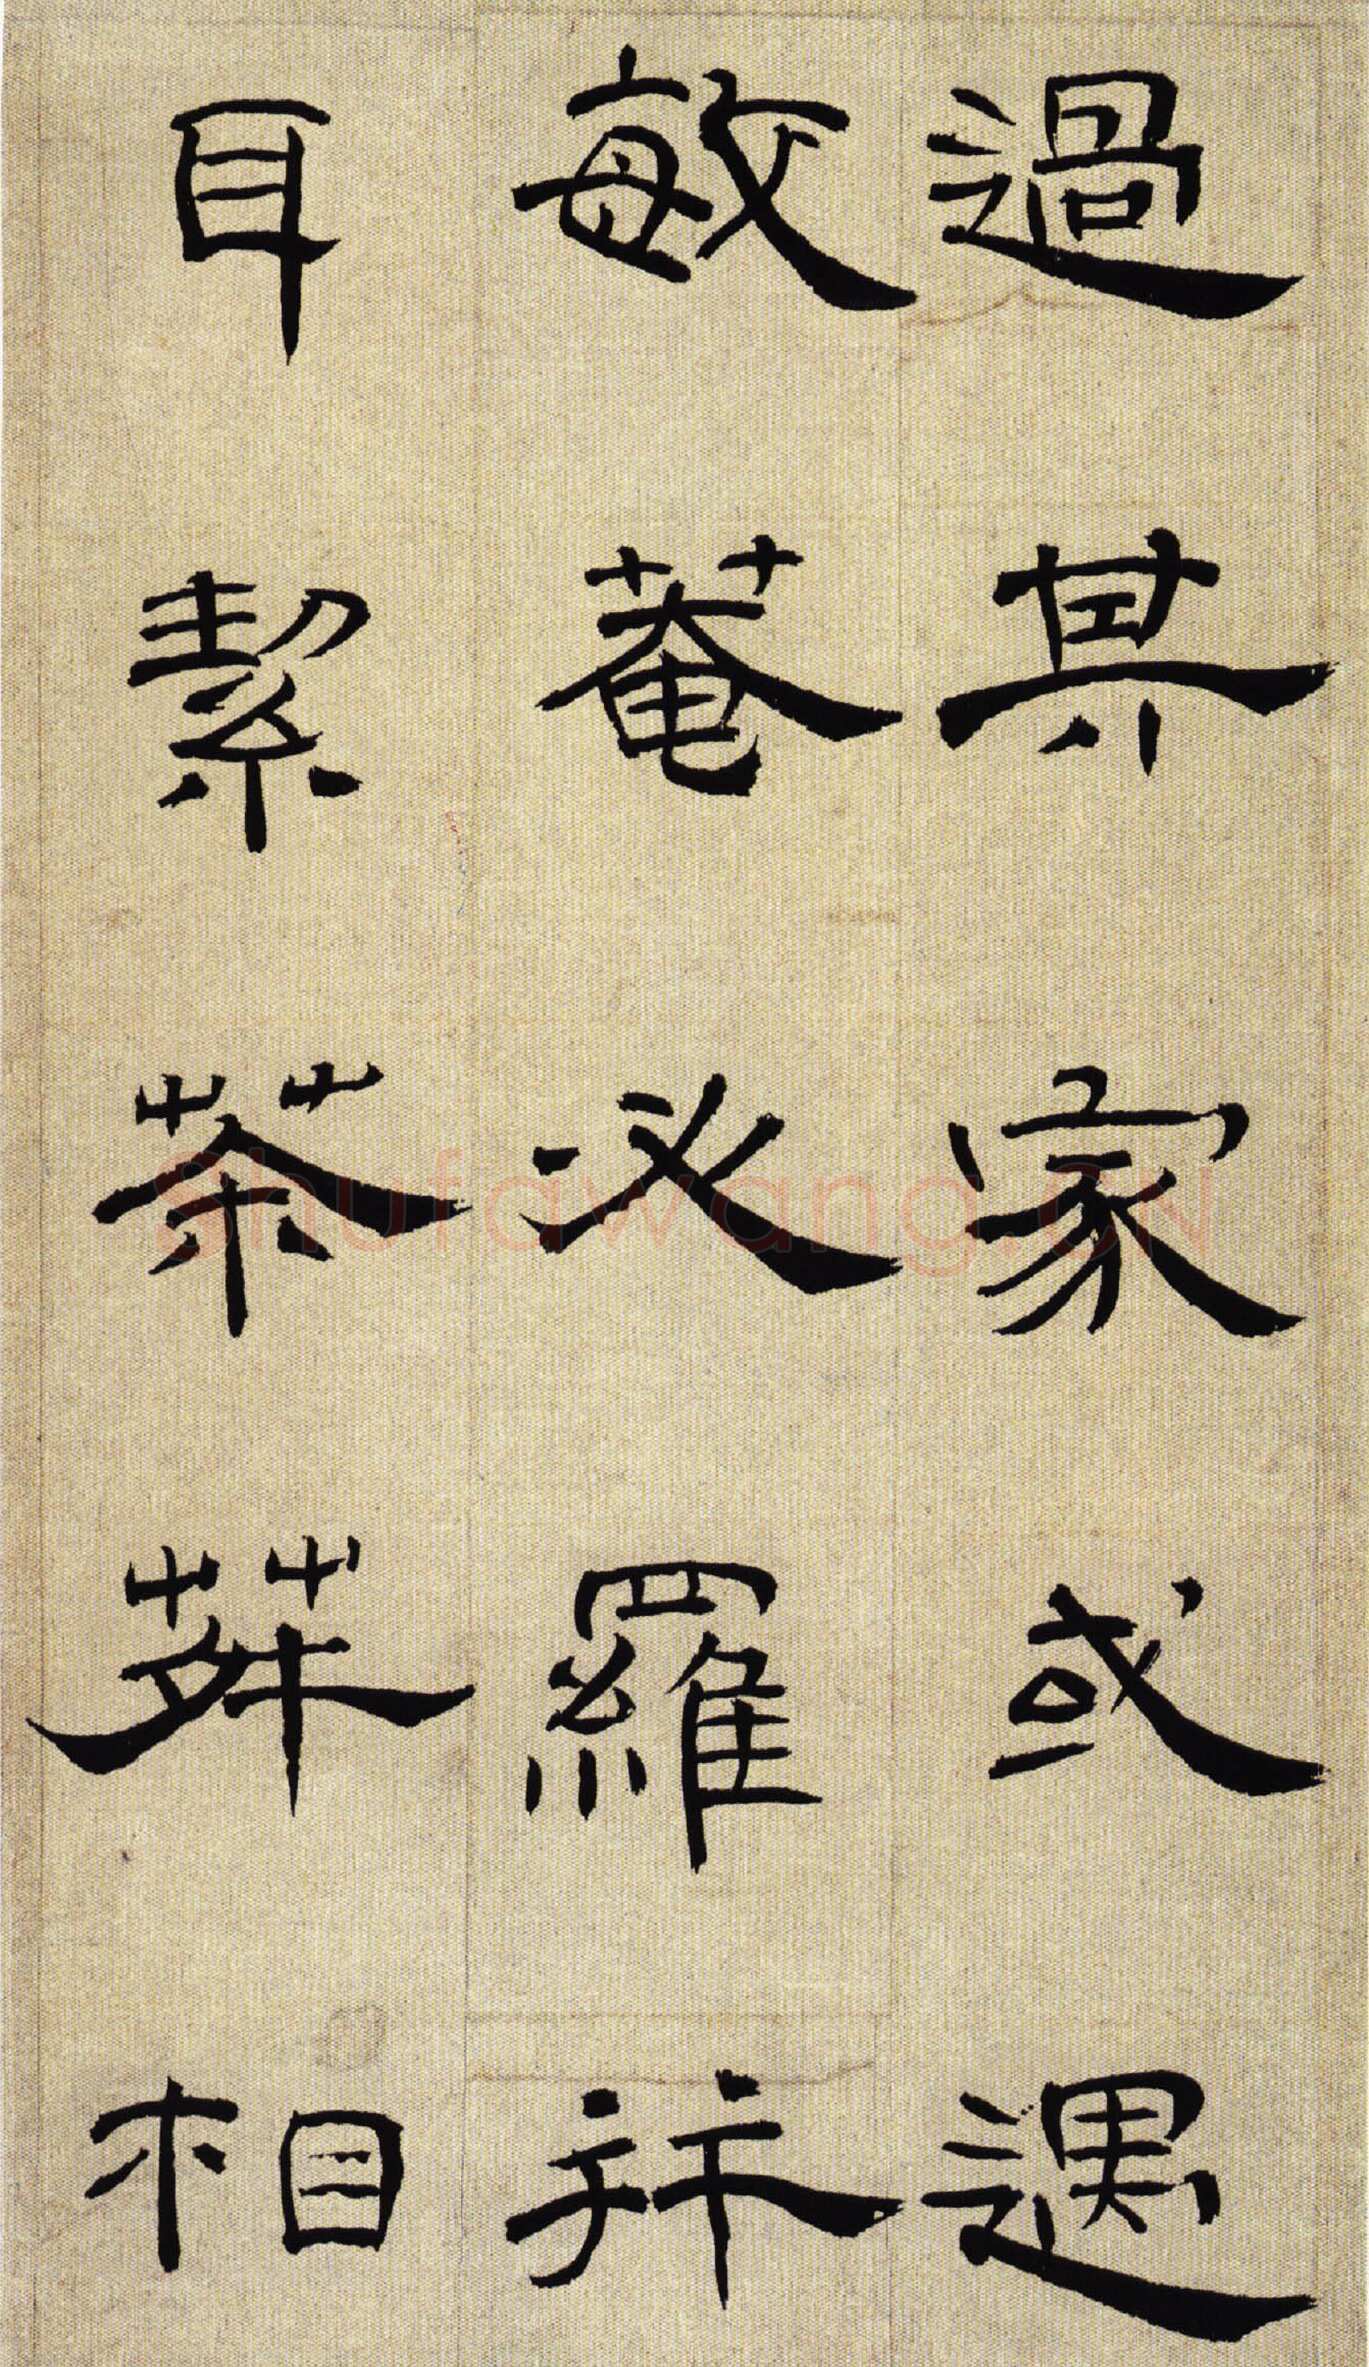 過其家或遇
敏菴必羅拜
耳絜茶荈相
shufawang.CN